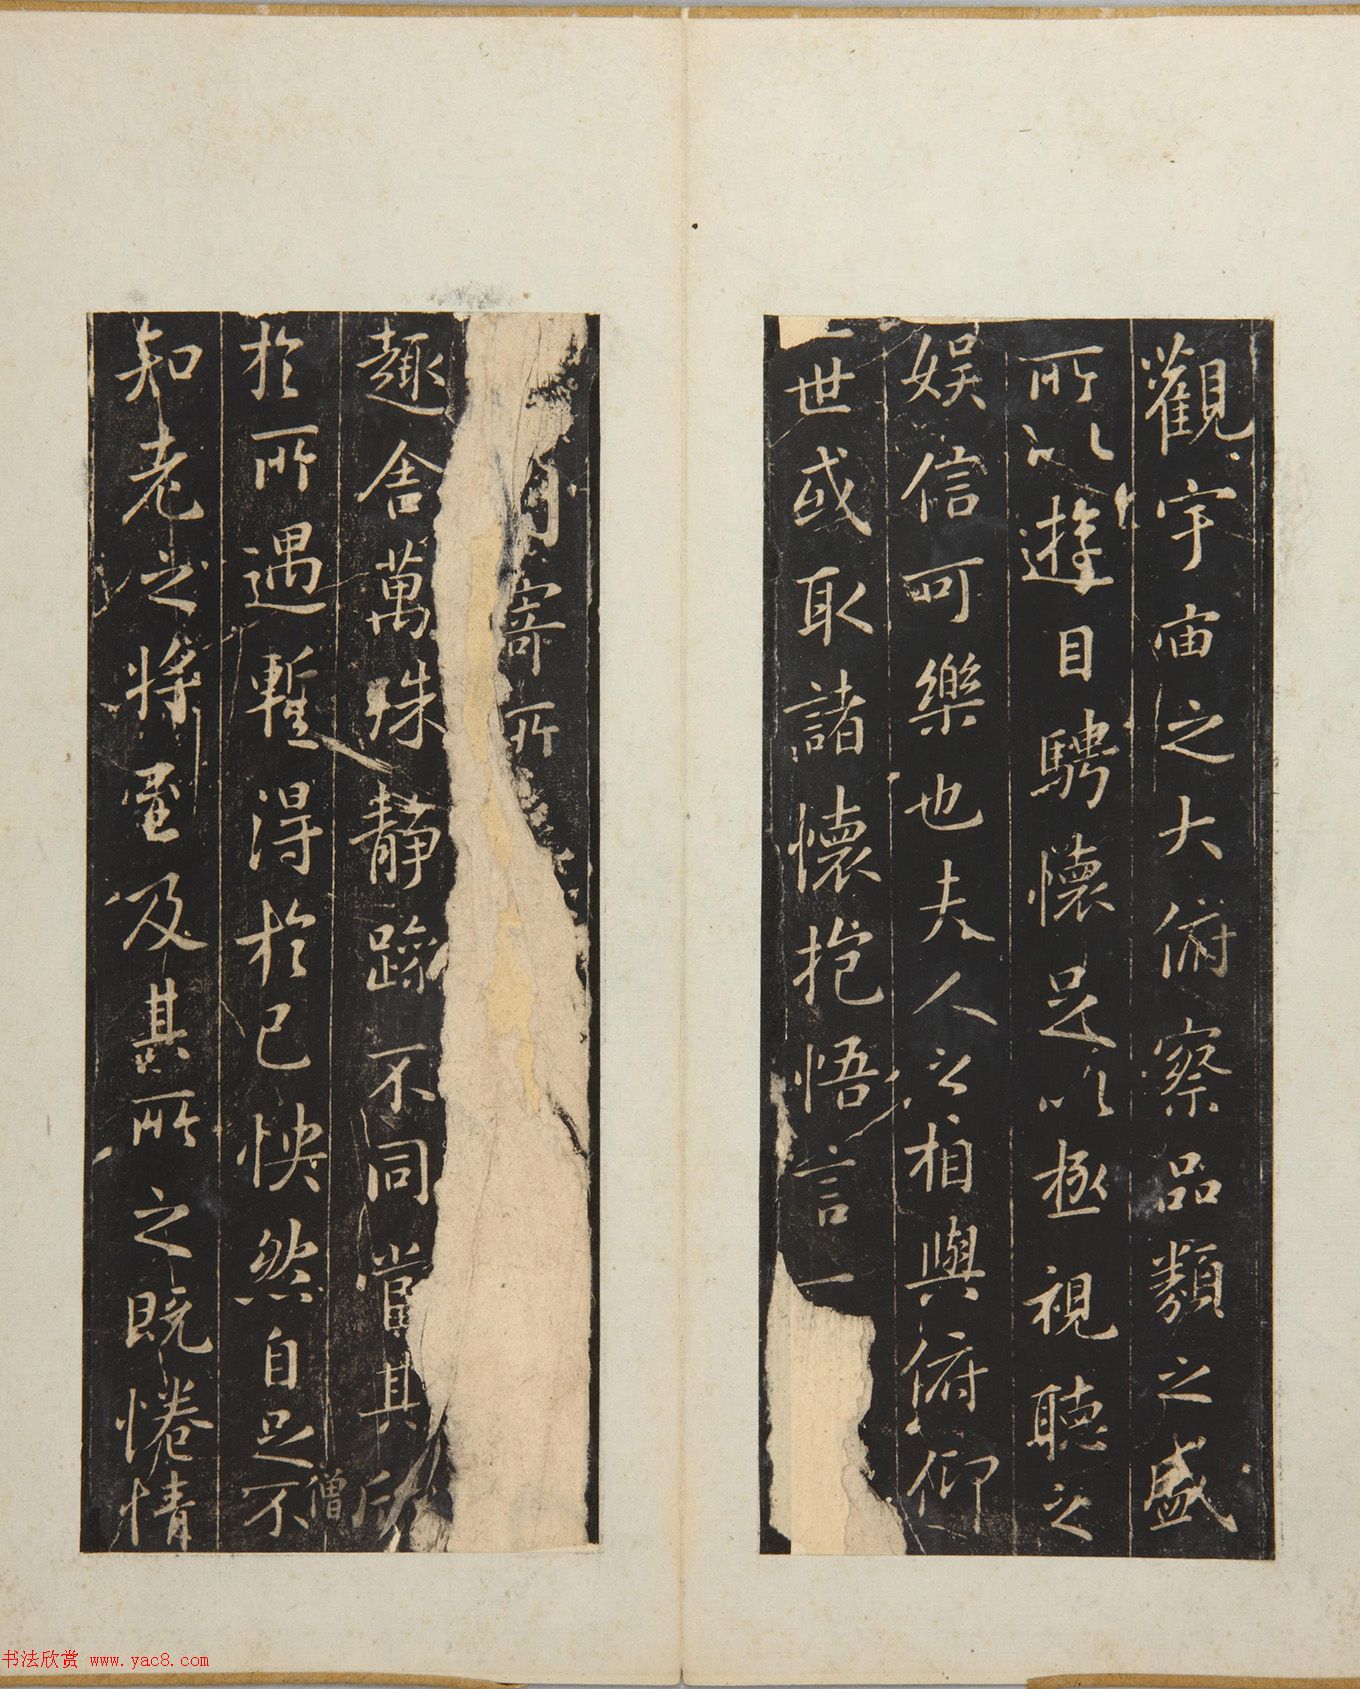 觀宇宙之大俯察品類之盛
所以遊目騁懷足以極視聽之
娛信可樂也夫人之相與俯仰
一世或取諸懷抱悟言一
寄所
趣舍萬殊靜躁不同當其所
於所遇暫得於己怏然自足不
僧
知老之將至及其所之既惓情
书法欣赏 www.yac8.com